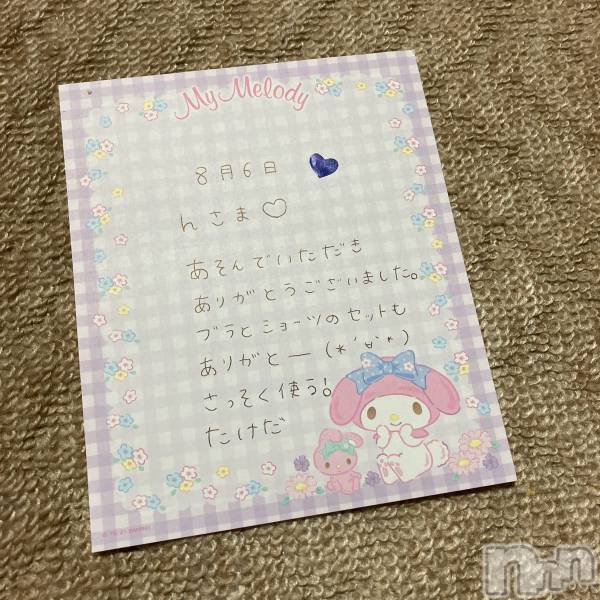 My Melody
8月6日
んさま♡
あそんでいただき
ありがとうございました。
ブラとショーツのセットも
ありがとー(*´∀`*)
さっそく使う!
たけだ